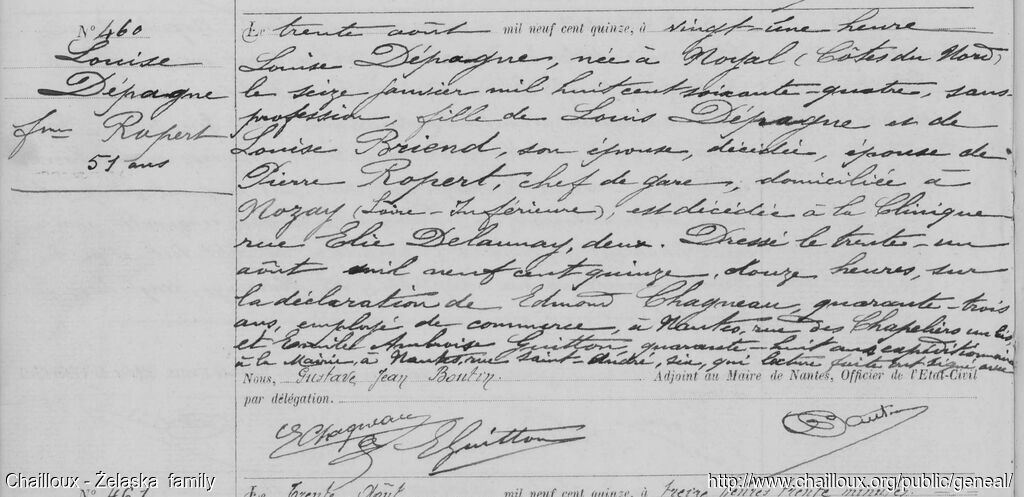 N° 460
Louise
Dépagne
fme Ropert
51 ans
Le trente août mil neuf cent quinze, à vingt-une heure
Louise Dépagne, née à Noyal (Côtes du Nord)
le seize janvier mil huit cent soixante-quatre, sans
profession, fille de Louis Dépagne et de
Louise Briend, son épouse, décédée, épouse de
Pierre Ropert, chef de gare, domiciliée à
Nozay (Loire-Inférieure), est décédée à la Clinique
rue Elie Delaunay, deux. Dressé le trente-un
août mil neuf cent quinze, douze heures, sur
la déclaration de Edmond Chagneau, quarante-trois
ans, employé de commerce, à Nantes, rue des Chapeliers un bis,
et Emile Ambroise Guitton quarante-huit ans
à la Mairie, à Nantes, rue Saint-André, six, qui lecture faite ont signé avec
Nous, Gustave Jean Boutin Adjoint au Maire de Nantes, Officier de l'Etat-Civil
par délégation.
E Chagneau E Guitton Boutin
Chailloux - Żelaska family http://www.chailloux.org/public/geneal/
N° 461 Le trente Août mil neuf cent quinze, à treize heures trente minutes